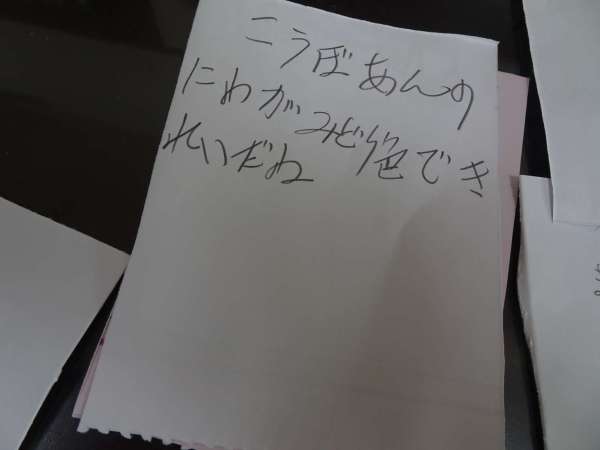 こうぼあんの
にわがみどり色でき
れいだね